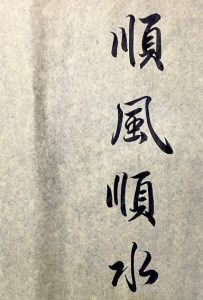 順風順水